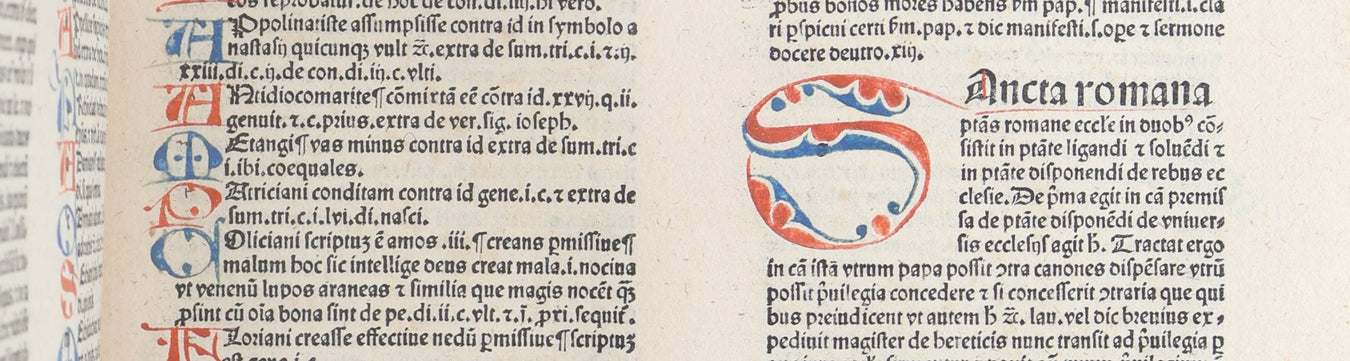 Apolinariste assumpsisse contra id in symbolo a
nastasij quicunqꝫ vult ⁊c̄.extra de sum.tri.c.i.⁊.ij.
xxiii.di.c.ij.de con.di.iij.c.vlti.
Antidiocomarite¶ cōmixtā eē cōtra id.xxvij.q.ii.
genuit.⁊.c.prius.extra de ver.sig. ioseph.
Metangi¶ vas minus contra id extra de sum.tri.c
i.ibi.coequales.
Patriciani conditam contra id gene.i.c.⁊ extra de
sum.tri.c.i.lvi.di.nasci.
Coliciani scriptuꝫ ē amos .iii.¶ creans ꝑmissiue¶
malum hoc sic intellige deus creat mala.i.nociua
vt venenū lupos araneas ⁊ similia que magis nocēt qꝫ̄
ꝓsint cū oīa bona sint de pe.di.ii.c.vlt.⁊.j. ꝓxi.sequit̄.
Floriani creasse effectiue nedū ꝑmissiue¶ scriptuꝫ
ꝓbus bonos mores habens ẜm pap.¶ manifesti.i.cla
ri ꝑspicui certi ẜm.pap.⁊ dic manifesti.s.ope ⁊ sermone
docere deutro.xiij.
SAncta romana
ptās romane eccl'e in duobꝰ cō-
sistit in ptāte ligandi ⁊ soluēdi ⁊
in ptāte disponendi de rebus ec
clesie.De p̄ma egit in cā premis
sa de ptāte disponēdi de vniuer-
sis ecclesijs agit h̄. Tractat ergo
in cā istā vtrum papa possit ↄtra canones dispēsare vtrū
possit p̄uilegia concedere ⁊ si concesserit ↄtraria que qui
bus preiudicent vt autem h̄ ⁊c̄. lau.vel dic breuius ex-
pediuit magister de hereticis nunc transit ad p̄uilegia ꝑ